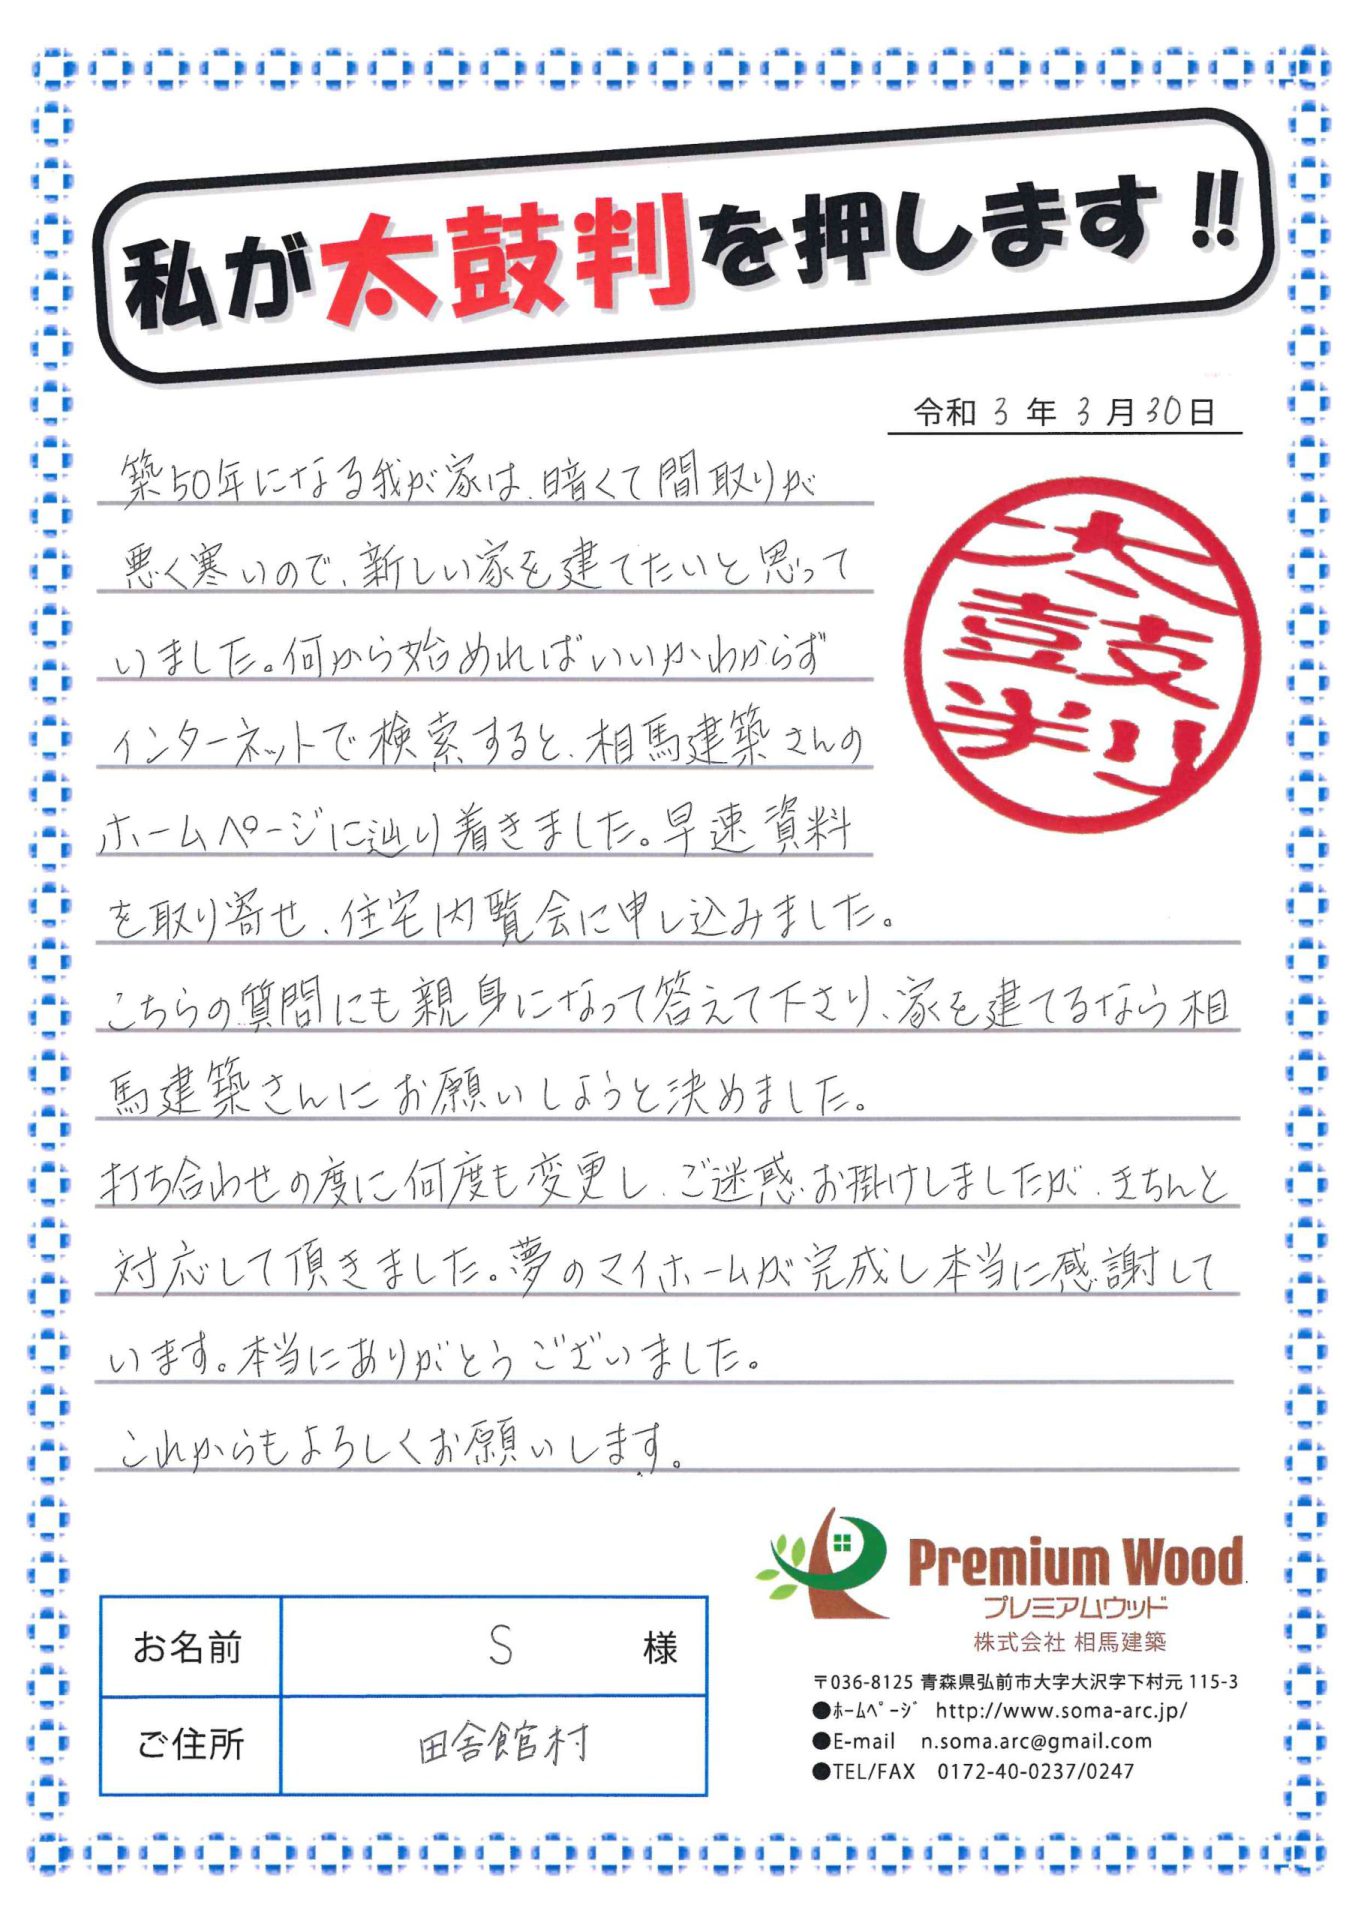 私が太鼓判を押します!!
令和 3 年 3 月 30 日
太鼓判
築50年になる我が家は、暗くて間取りが
悪く寒いので、新しい家を建てたいと思って
いました。何から始めればいいかわからず
インターネットで検索すると、相馬建築さんの
ホームページに辿り着きました。早速資料
を取り寄せ、住宅内覧会に申し込みました。
こちらの質問にも親身になって答えて下さり、家を建てるなら相
馬建築さんにお願いしようと決めました。
打ち合わせの度に何度も変更し、ご迷惑お掛けしましたが、きちんと
対応して頂きました。夢のマイホームが完成し本当に感謝して
います。本当にありがとうございました。
これからもよろしくお願いします。
お名前 S 様
ご住所 田舎館村
Premium Wood
プレミアムウッド
株式会社 相馬建築
〒036-8125 青森県弘前市大字大沢字下村元 115-3
●ﾎｰﾑﾍﾟｰｼﾞ http://www.soma-arc.jp/
●E-mail n.soma.arc@gmail.com
●TEL/FAX 0172-40-0237/0247